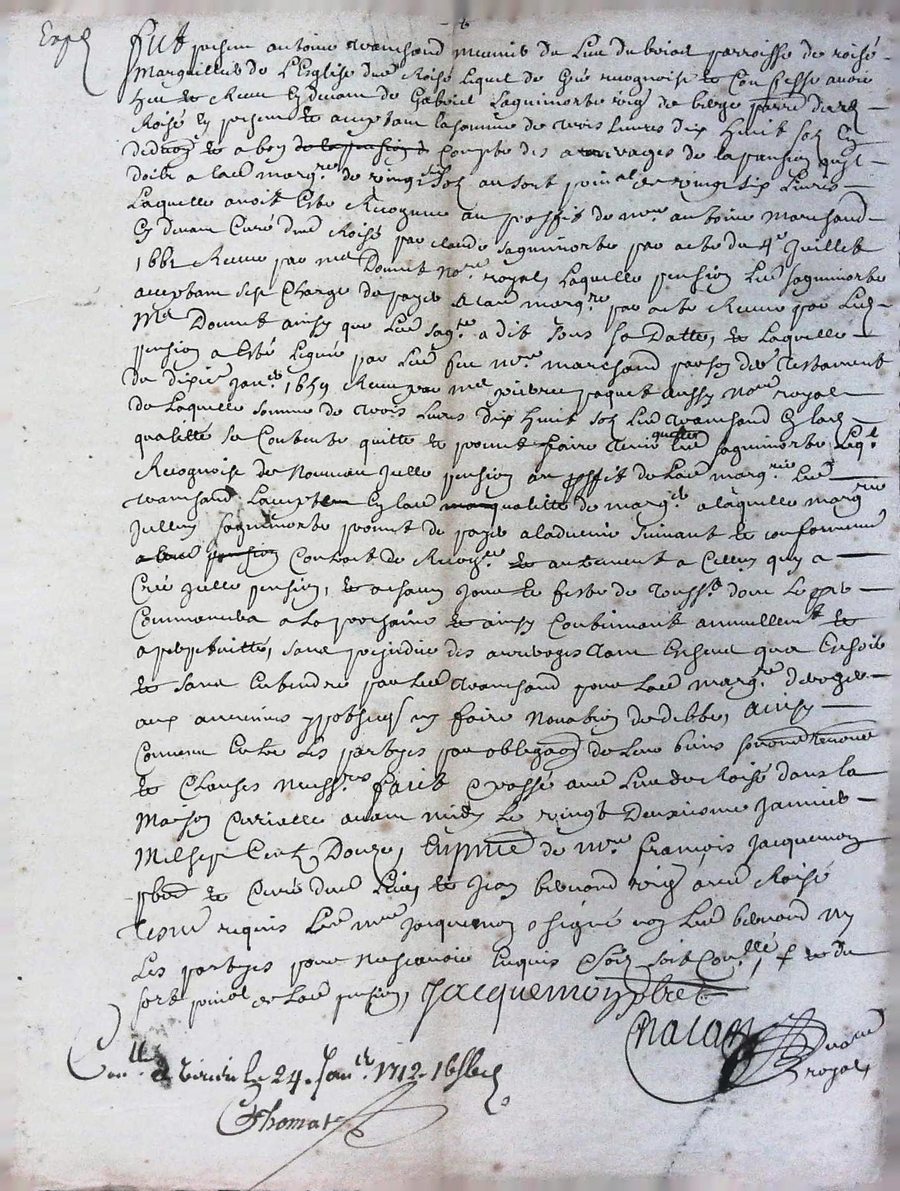 Exp^d
fut present antoine marchand meunie du Lieu du briat parroisse de roisé
Marguillier de L'Eglise dud Roisé Lequel de Gré recognoist et Confesse avoir
heu et Receu Cy devant de Gabriel Saguimorte de berge parre dud
Roisé Cy present et acceptant la somme de trois livres dix huit sols En
et a bon compte des arrerages de la pension qu'il
doibt a lad marg^re de vingt sols au sort prin^al de vingt six Livres
Laquelle avoit Esté Recognue au proffit de m^re antoine Marchand
Cy devant Curé dud Roisé par claude Saguimorte par acte du 4^e Juillet
1661 Receu par m^e Doumet No^re royal Laquelle pension Led Saguimorte
acceptant Charge de payer a lad marg^re par acte Receu par Led
M^e Doumet ainsy que Led Sag^te a dit sous sa Datte, et Laquelle
pension a Esté Leguée par Led feu m^re marchand par son der Testament
du dixie^e Jan^er 1659 Receu par m^e pierre paquet aussy No^re royal
de Laquelle somme de trois Livres dix huit sols Led marchand En lad
qualitté se Contente quitte et promet faire tenir quitte Led Saguimorte Leq^l
Recognoist de Nouveau Jcelle pension au proffit de Lad marg^rie Led
marchand L'accept^tant En lad qualitté de marg^r a laquelle marg^rie
Jcelluy Saguimorte promet de payer a ladvenir suivant et conformement
Contrat de Recog^ce et autrement a Celluy quy a
Créé Jcelle pension, et a chacun Jour et feste de Touss^ts dont Le p^re
Commencera a La prochaine et ainsy Continuant annuellem^t et
a perpetuitté, sans prejudice des arrerages tant Escheus que Eschoir
et sans Entendre par Led marchand pour Lad marg^rie deroger
aux antérieures ypotheques ny faire Novation de debte, ainsy
Convenu Entre Les partyes par obligaon de Leurs biens
et Clauses Necess^res fait et passé aud Lieu de Roisé dans la
Maison Curialle avant midy Le vingt Deuxiesme Janvier
Mil sept Cent Douze, En presence de m^re françois Jacquemon
pbre et Curé dud Lieu et Jean bernard aud Roisé
tesm requis Led m^re Jacquemon a signé non Led bernard ny
Les partyes pour ne scavoir Enquis Soit Con^llé, et du
sort prin^al de Lad pension, Jacquemon pbre
Natan Nore royal
Con^llé a le 24. Jan^er 1712.
Thomas